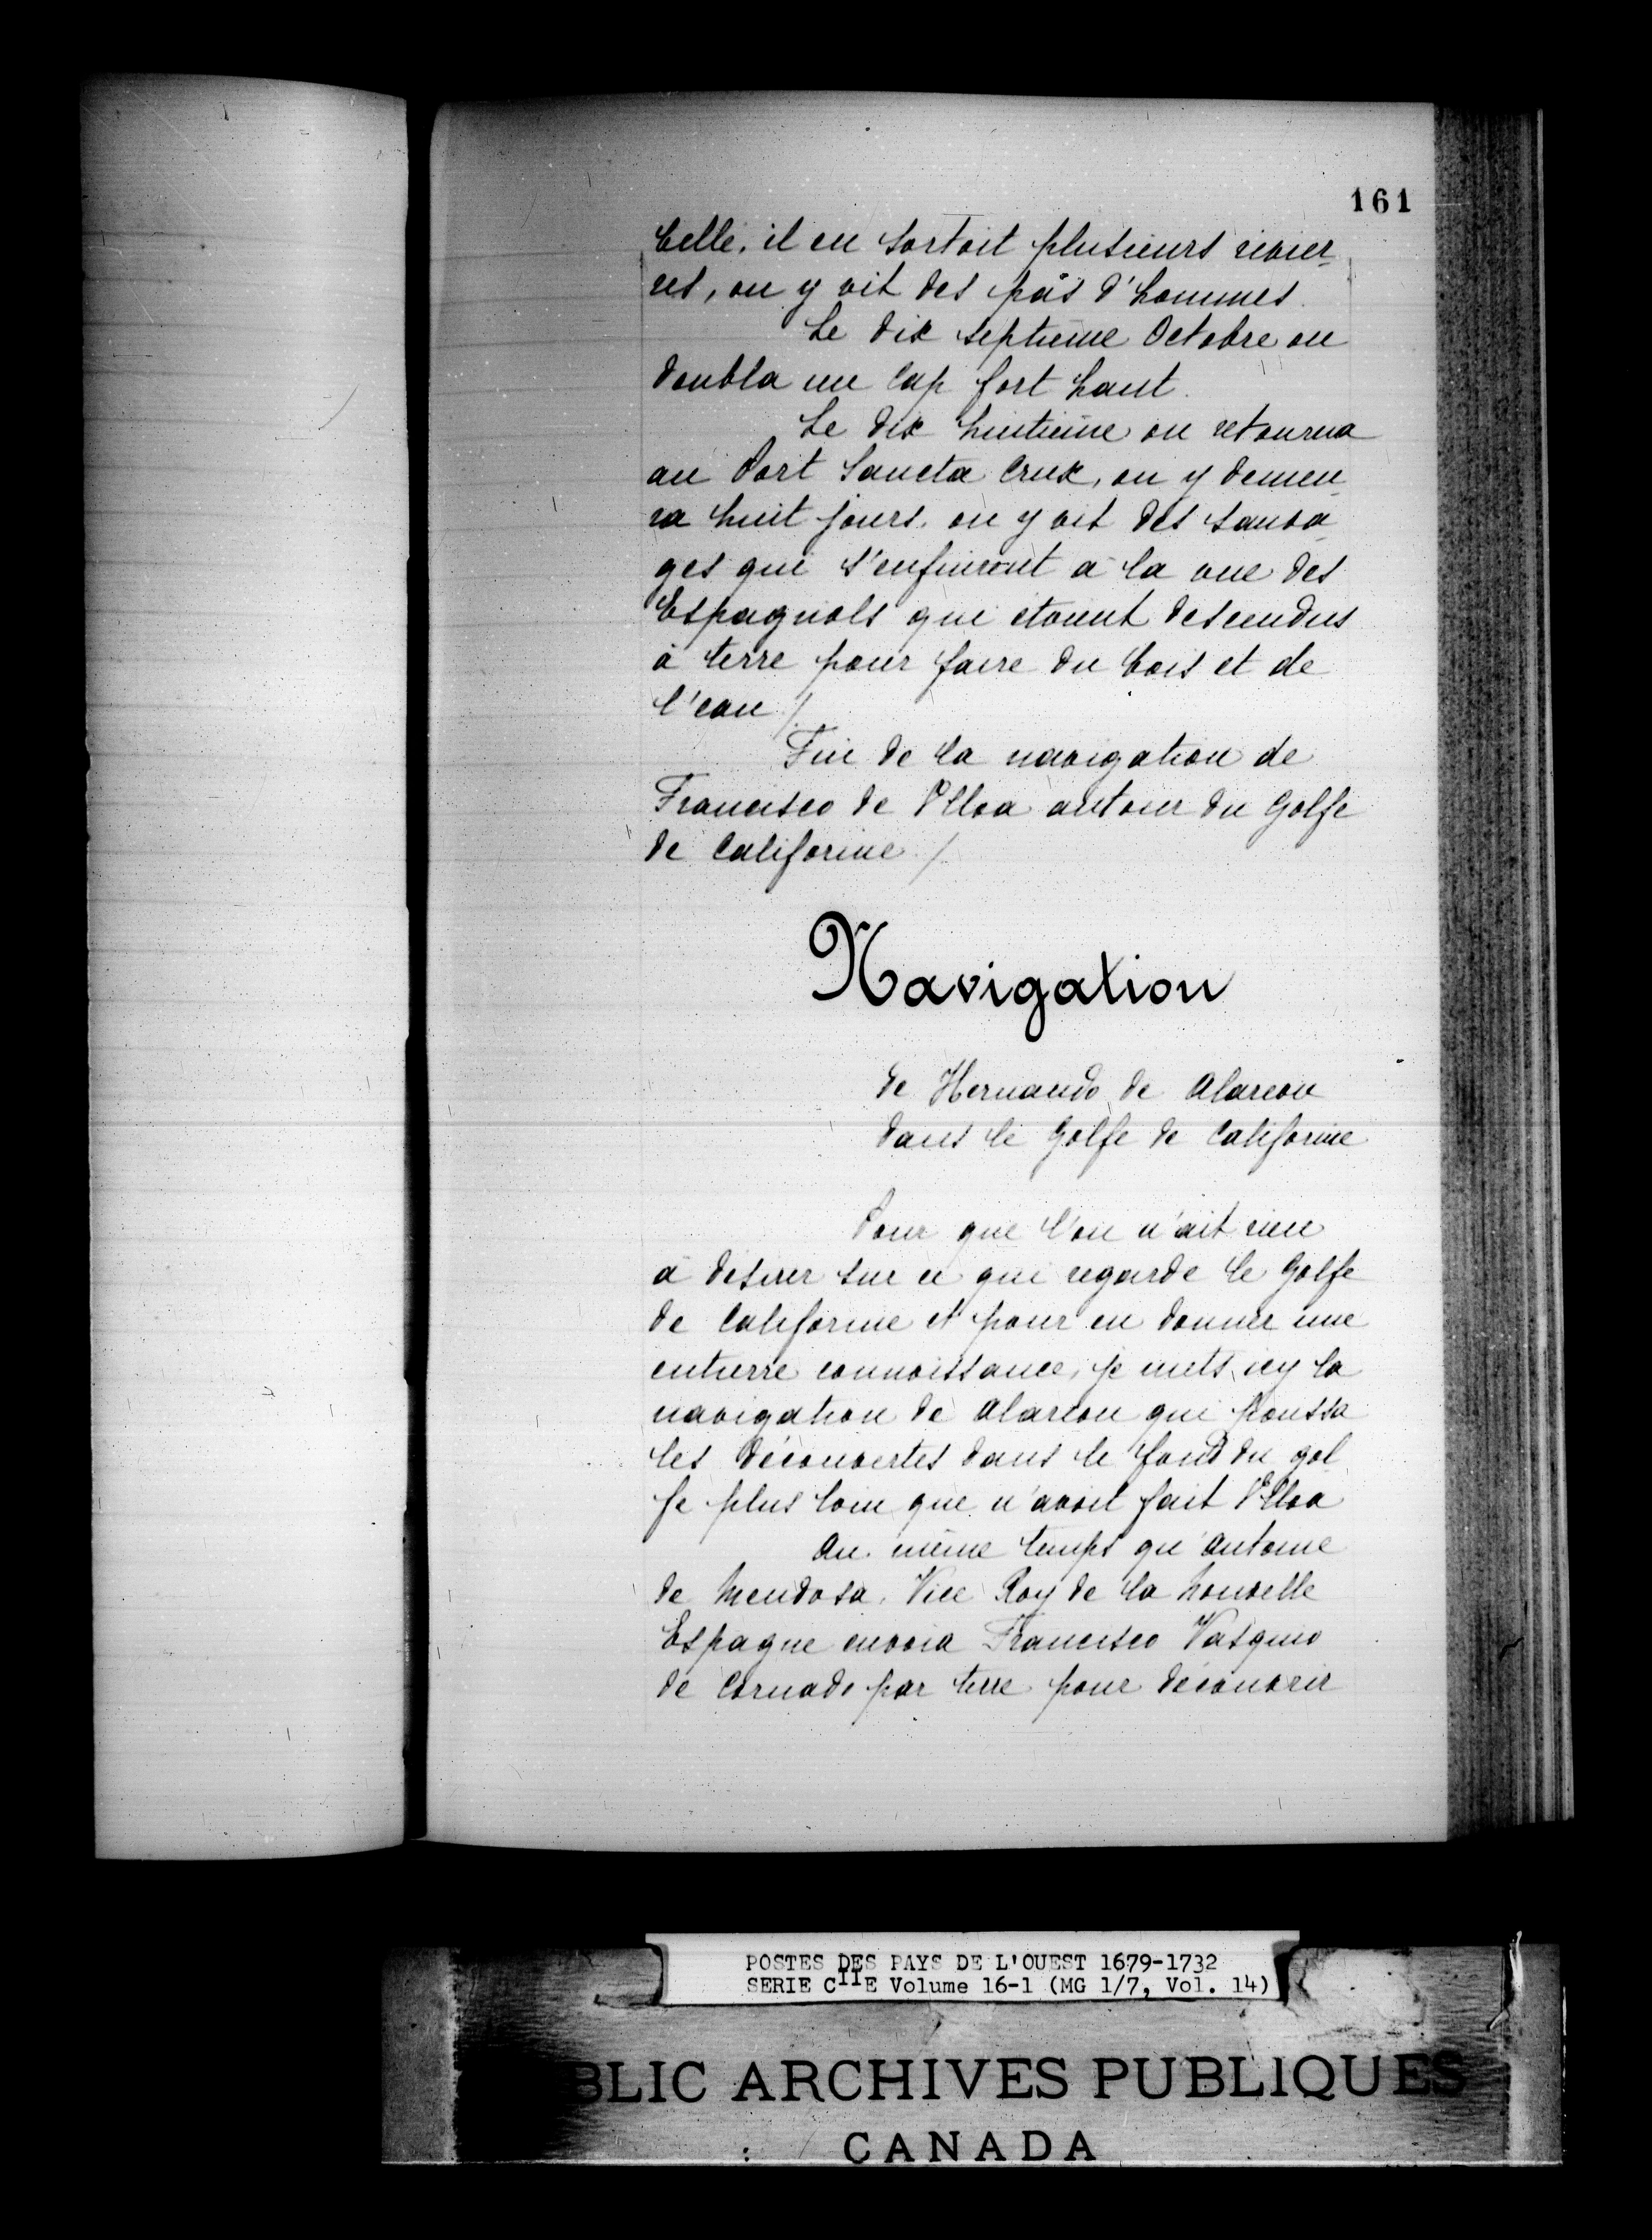 161
belle, il en sortoit plusieurs rivier-
res, on y vit des pas d'hommes.
Le dix septieme Octobre on
doubla un Cap fort haut.
Le dix huitieme on retourna
au Port Sancta Crux, on y demeu-
ra huit jours. on y vit des sauva-
ges qui s'enfuirent à la vue des
Espagnols qui etoient descendus
à terre pour faire du bois et de
l'eau /
Fin de la navigation de
Francisco de Ulloa autour du Golfe
de Californie /
Navigation
de Hernando de Alarcon
dans le Golfe de Californie
Pour que l'on n'ait rien
à desirer sur ce qui regarde le Golfe
de Californie et pour en donner une
entierre connoissance, je mets icy la
navigation de Alarcon qui poussa
les découvertes dans le fond du gol-
fe plus loin que n'avoit fait Ulloa
Au même temps qu'Antoine
de Mendosa, Vice Roy de la Nouvelle
Espagne envoia Francisco Vasquio
de Cornado par terre pour découvrir
POSTES DES PAYS DE L'OUEST 1679-1732
SERIE CIIE Volume 16-1 (MG 1/7, Vol. 14)
BLIC ARCHIVES PUBLIQUES
CANADA